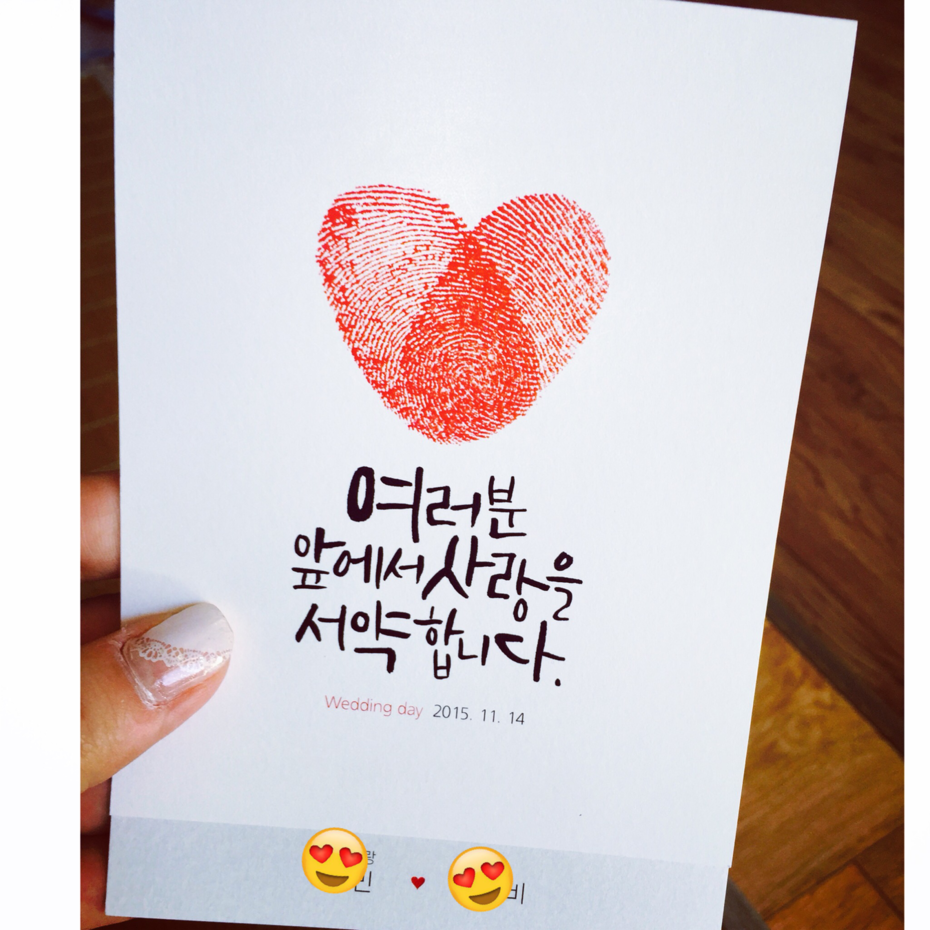 여러분
앞에서 사랑을
서약합니다.
Wedding day 2015. 11. 14